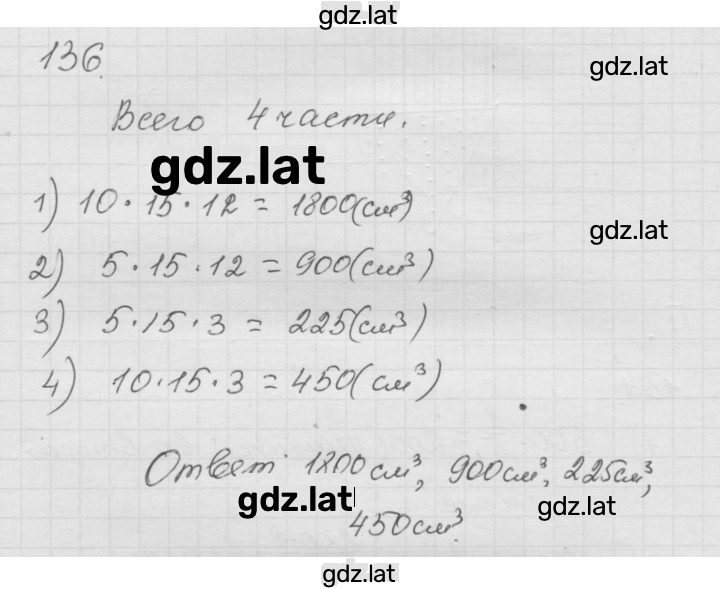 gdz.lat
136.
gdz.lat
Всего 4 части.
gdz.lat
1) 10·15·12 = 1800(см³)
gdz.lat
2) 5·15·12 = 900(см³)
3) 5·15·3 = 225(см³)
4) 10·15·3 = 450(см³)
Ответ: 1800см³, 900см³, 225см³,
gdz.lat
gdz.lat
450см³.
gdz.lat